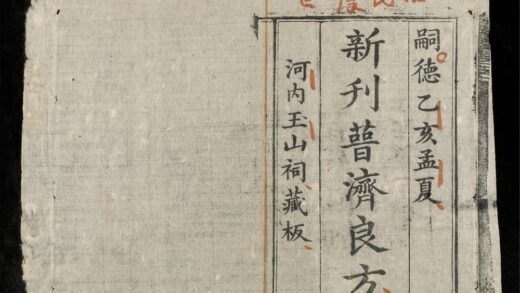 嗣德乙亥孟夏
新刊普濟良方
河内玉山祠藏板